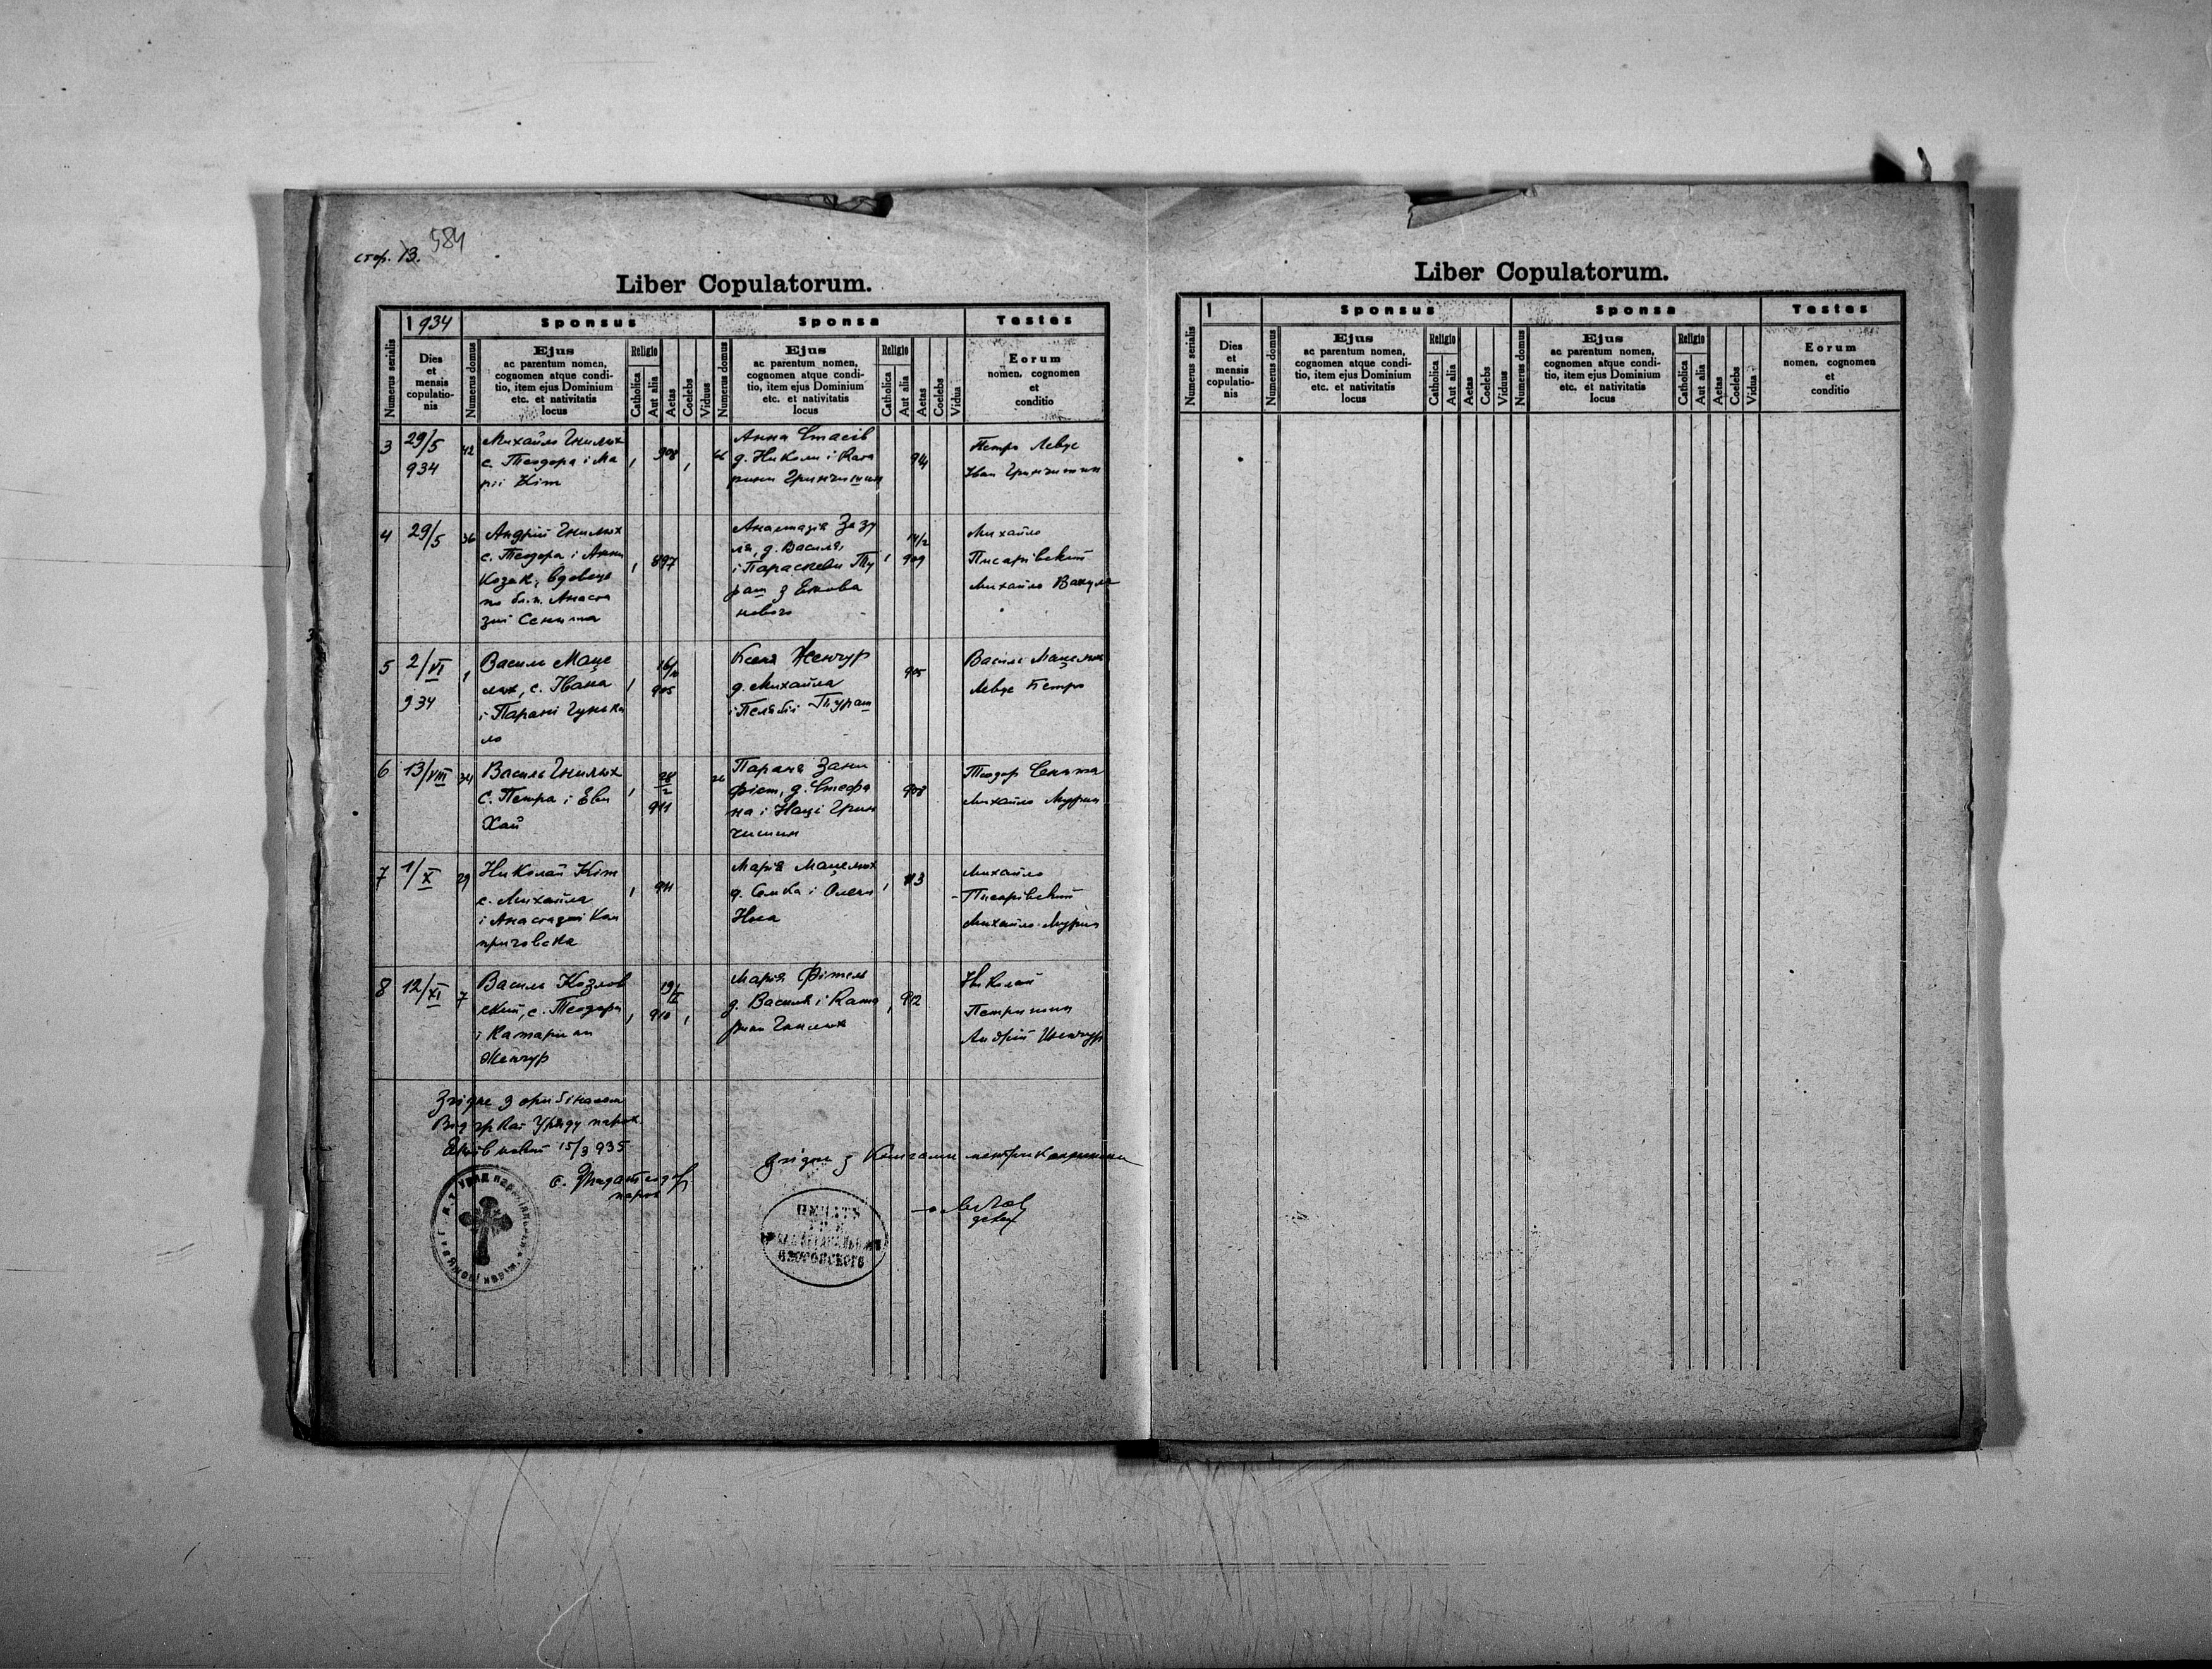 584
стор. 13.
Liber Copulatorum.
Numerus serialis
1934
Dies
et
mensis
copulatio-
nis
Numerus domus
Sponsus
Ejus
ac parentum nomen,
cognomen atque condi-
tio, item ejus Dominium
etc. et nativitatis
locus
Religio
Catholica
Aut alia
Aetas
Coelebs
Viduus
Numerus domus
Sponsa
Ejus
ac parentum nomen,
cognomen atque condi-
tio, item ejus Dominium
etc. et nativitatis
locus
Religio
Catholica
Aut alia
Aetas
Coelebs
Vidua
Testes
Eorum
nomen, cognomen
et
conditio
3
29/5
934
42
Михайло Гнилюх
с. Теодора і Ма
рії Кіт
908
Анна Стасів
д. Николи і Kата
рини Гринчишин
914
Петро Левус
Іван Гринчишин
4
29/5
36
Андрій Гнилюх
с. Теодора і Анни
Козак, вдовець
по бл.п. Анаста
зиї Сенита
897
Анастазія Зазу
ля, д. Василя,
і Параскеви Ту
раш з
нового
14/2
909
Михайло
Писарівский
Михайло Вакула
5
2/VI
934
1
Василь Маце
люх, с. Івана
і Парані Гунька
ло
905
Ксеня Женчур
д. Михайла
і Пелягії Тураш
905
Василь Мацелюх
Левус Петро
6
13/VIII
34
Василь Гнилюх
с. Петра і Еви
Хай
911
26
Параня Зани
д. Стефа
на і Наці Грин
чишин
908
Теодор Сенита
Михайло Мурин
7
1/X
29
Николай Кіт
с. Михайла
і Анастазиї
911
Марія Мацелюх
д. Семка і Олени
Нога
913
Михайло
Писарівский
Михайло Мурин
8
12/XI
7
Василь Козлов
ский, с. Теодора
і Катарини
Женчур
910
Марія Фітель
д. Василя і Ката
рини Гнилюх
912
Николай
Петришин
Андрій Женчур
Згідне з оригіналом
Від гр. кат. Уряду парох.
15/3 935
парох
Згідне з Книгами метрикальними
декан
ПЕЧАТЬ
Liber Copulatorum.
Numerus serialis
1
Dies
et
mensis
copulatio-
nis
Numerus domus
Sponsus
Ejus
ac parentum nomen,
cognomen atque condi-
tio, item ejus Dominium
etc. et nativitatis
locus
Religio
Catholica
Aut alia
Aetas
Coelebs
Viduus
Numerus domus
Sponsa
Ejus
ac parentum nomen,
cognomen atque condi-
tio, item ejus Dominium
etc. et nativitatis
locus
Religio
Catholica
Aut alia
Aetas
Coelebs
Vidua
Testes
Eorum
nomen, cognomen
et
conditio